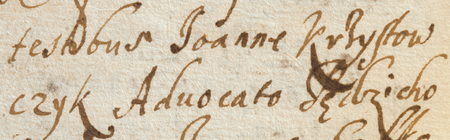 testibus Joanne Krzysztow
czyk Advocato Sędzicho